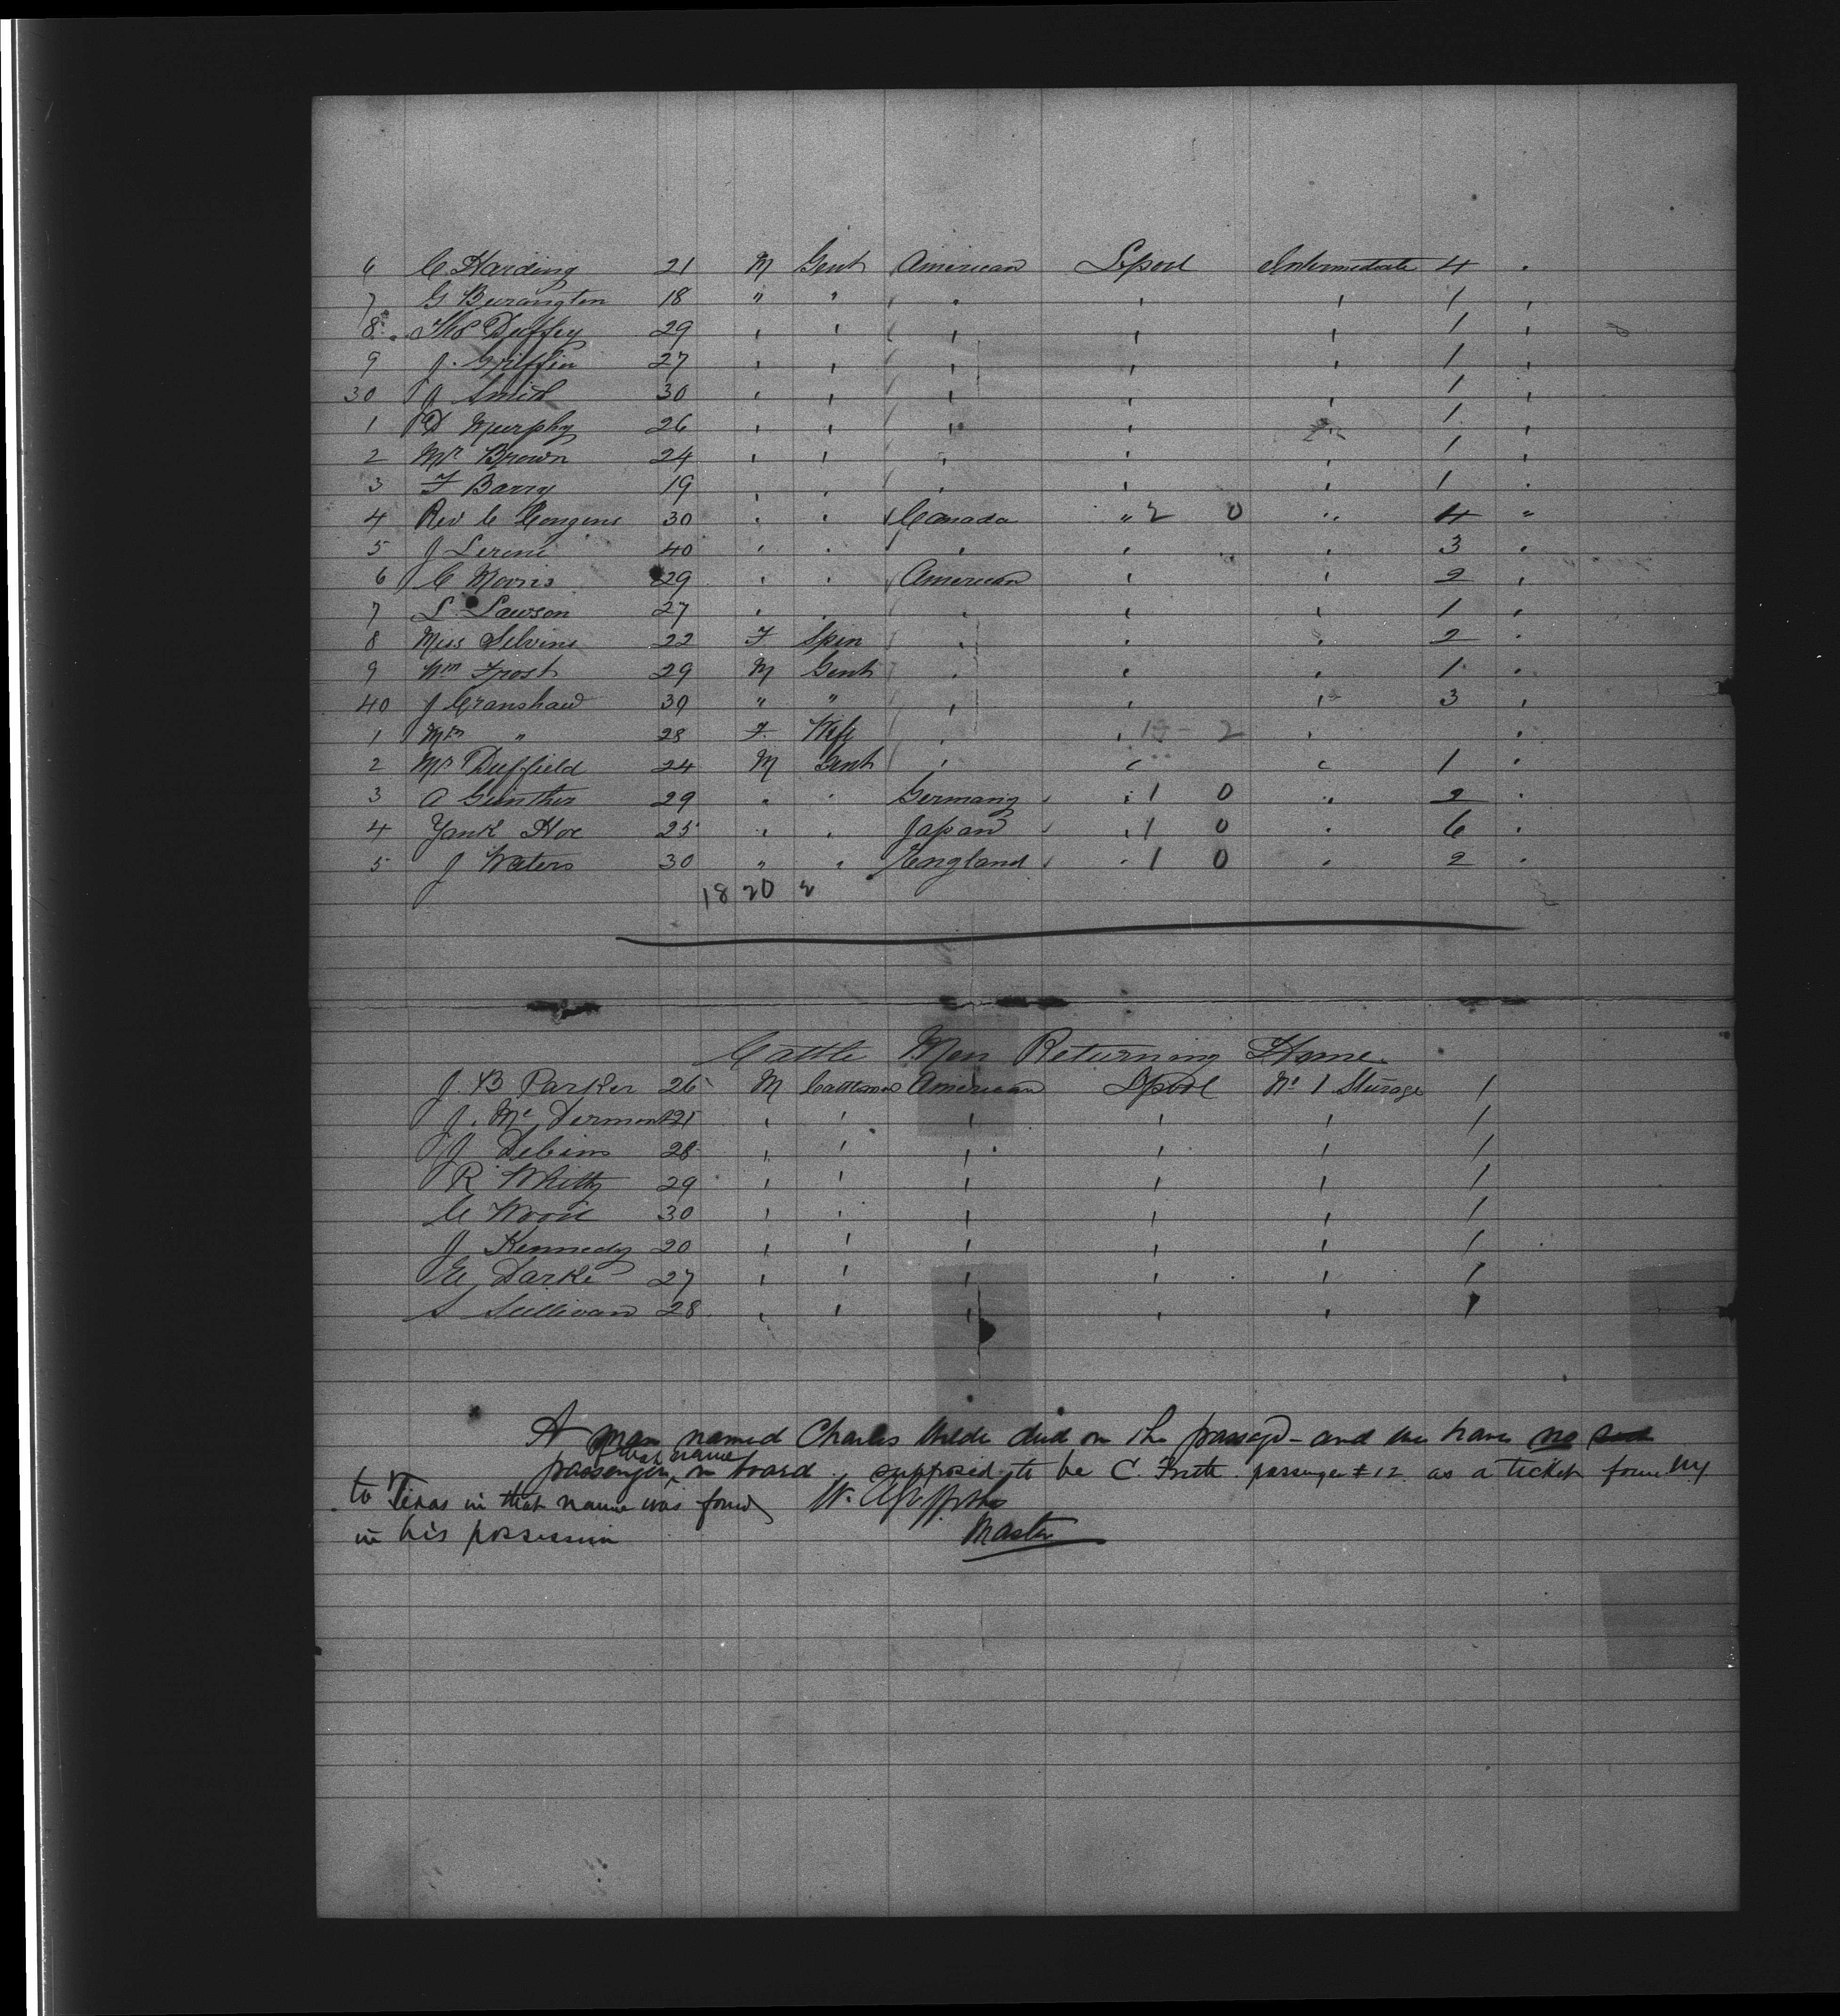 6 C Harding 21 M Gent American Lpool Intermediate 4 "
7 G Burington 18 " " " " " 1 "
8 Thos Duffey 29 " " " " " 1 "
9 J. Griffin 27 " " " " " 1 "
30 J Smith 30 " " " " " 1 "
1 D Murphy 26 " " " " " 1 "
2 Mr Brown 24 " " " " " 1 "
3 F Barry 19 " " " " " 1 "
4 Rev C 30 " " Canada " 2 0 " 4 "
5 J 40 " " " " " 3 "
6 C Morris 29 " " American " " 2 "
7 L Lawson 27 " " " " " 1 "
8 Miss Selvins 22 F Spin " " " 2 "
9 Wm Frost 29 M Gent " " " 1 "
40 J Cranshaw 30 " " " " " 3 "
1 Mrs " 28 F. Wife " " 2 " "
2 Mr Duffield 24 M Gent " " " 1 "
3 A Gunther 29 " " Germany " 1 0 " 2 "
4 Yank Hoe 25 " " Japan " 1 0 " 6 "
5 J Waters 30 " " England " 1 0 " 2 "
18 20 2
Cattle Men Returning Home
J. B Parker 26 M Cattleman American Lpool No 1 Sturage 1
J. Mc Dermont 21 " " " " " 1
J 28 " " " " " 1
R Whitty 29 " " " " " 1
C Wood 30 " " " " " 1
J Kennedy 20 " " " " " 1
E Darke 27 " " " " " 1
S Sullivan 28 " " " " " 1
A man named Charles Wilde died on the passage - and we have no
of that name
passenger on board, supposed to be C. Frith passenger # 12 as a ticket from NY
to Texas in that name was found W. Griffiths
in his possession Master